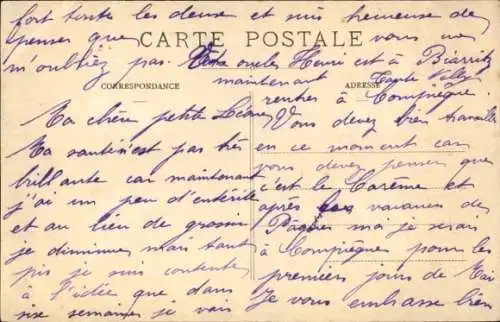 fort toute les deuse et suis heureuse de
penser que vous ne
CARTE POSTALE
m'oubliez pas. Votre oncle Henri est à Biarritz
maintenant Tante
CORRESPONDANCE
ADRESSE
rentrés à Compiègne.
Ma chère petite
Ma santé n'est pas très
brillante car maintenant
j'ai un peu d'entérite
et au lieu de grossir
je diminues mais tant
pis je suis contente
à l'idée que dans
sixe semaines je vais
Vous devez bien travailler
en ce moment car
vous devez penser que
c'est le Carême et
après les vacances de
Pâques moi je serais
à Compiègne pour les
premiers jours de Mai
Je vous embrasse bien